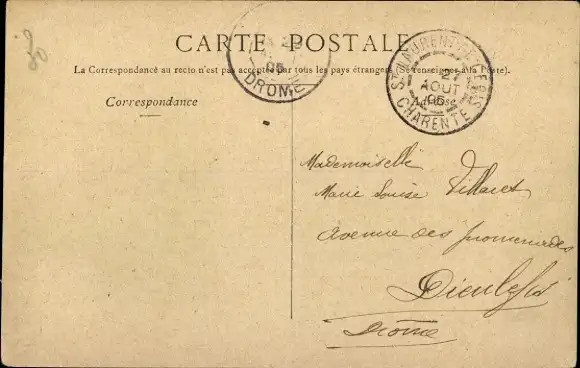 CARTE POSTALE
La Correspondance au recto n'est pas acceptée par tous les pays étrangers (Se renseigner à la Poste).
Correspondance
Adresse
05
DROME
ST LAURENT DE CERIS
AOUT
05
CHARENTE
Mademoiselle
Marie Louise Villaret
Avenue des promenades
Dieulefit
Drôme